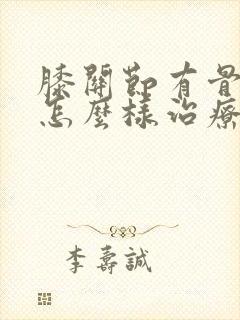 膝關節有骨
怎麼樣治療
李壽誠